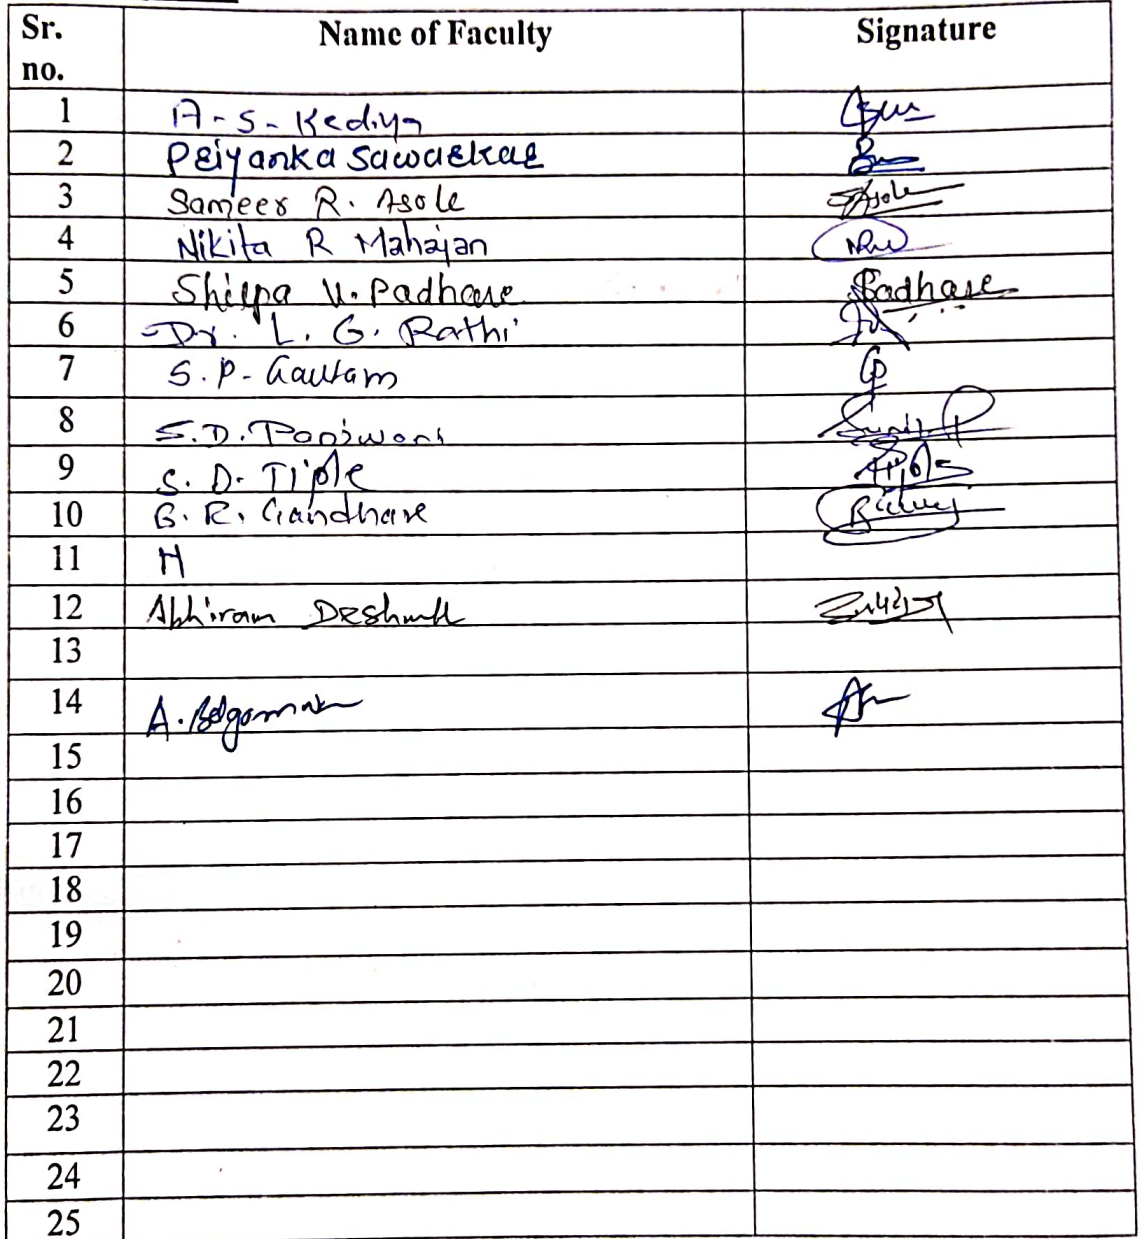 Sr. no. Name of Faculty Signature
1 A. S. Kediya
2 Priyanka Sawarkar
3 Sameer R. Asole Asole
4 Nikita R Mahajan
5 Shilpa V. Padhare Padhare
6 Dr. L. G. Rathi
7 S. P. Gautam
8 S. D. Panjwani
9 S. D. Tiple
10 B. R. Gandhare
11 H
12 Abhiram
13
14 A.
15
16
17
18
19
20
21
22
23
24
25